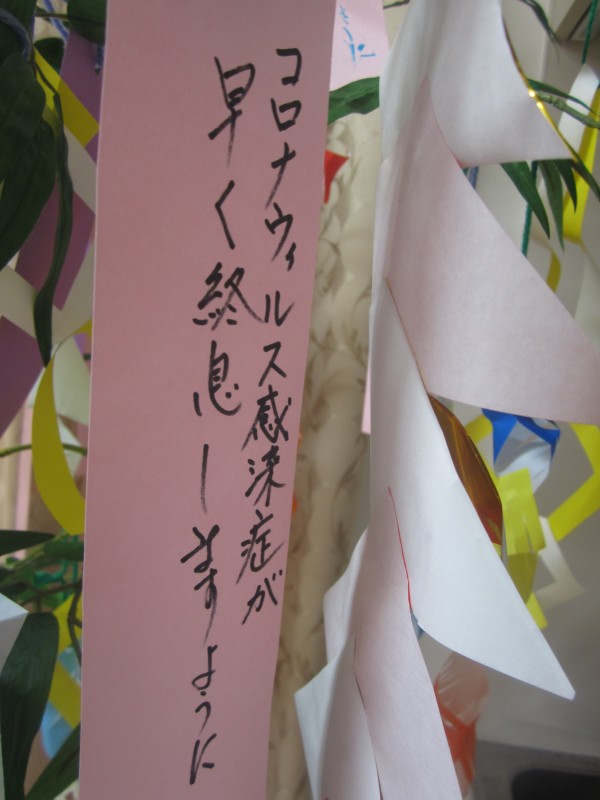 コロナウィルス感染症が
早く終息しますように